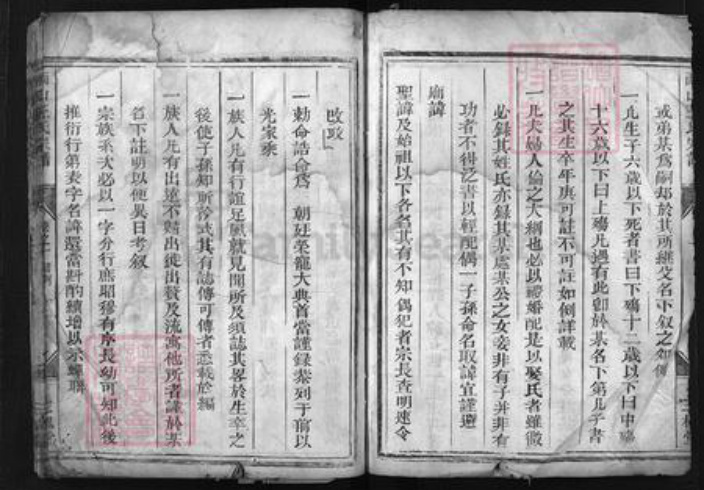 或弟某爲嗣却於其所繼父名下叙之如傳
一凡生子六歲以下死者書曰下殤十二歲以下曰中殤
十六歲以下曰上殤凡遇有此卽於某名下第几子書
之其生卒年庚可註不可註如例詳載
一凡夫婦人倫之大綱也必以禮婚配是以娶氏者雖微
必錄其姓氏亦錄其某處某公之女妾非有子并非有
功者不得泛書以輕配偶一子孫命名取諱宜謹避
廟諱
聖諱及始祖以下各名其有不知偶犯者宗長查明速令
改政
一勅命誥命爲 朝廷榮寵大典首當謹錄彙列于前以
光家乘
一族人凡有行誼足風就見聞所及須誌其畧於生卒之
後使子孫知所矜式其有誌傳可傳者悉載於編
一族人凡有出逑不歸出徙出贅及流寓他所者謹於某
名下註明以便異日考叙
一宗族系次必以一字分行庶昭穆有序長幼可知此後
推衍行第表字名諱還當斟酌續增以示蟬聯